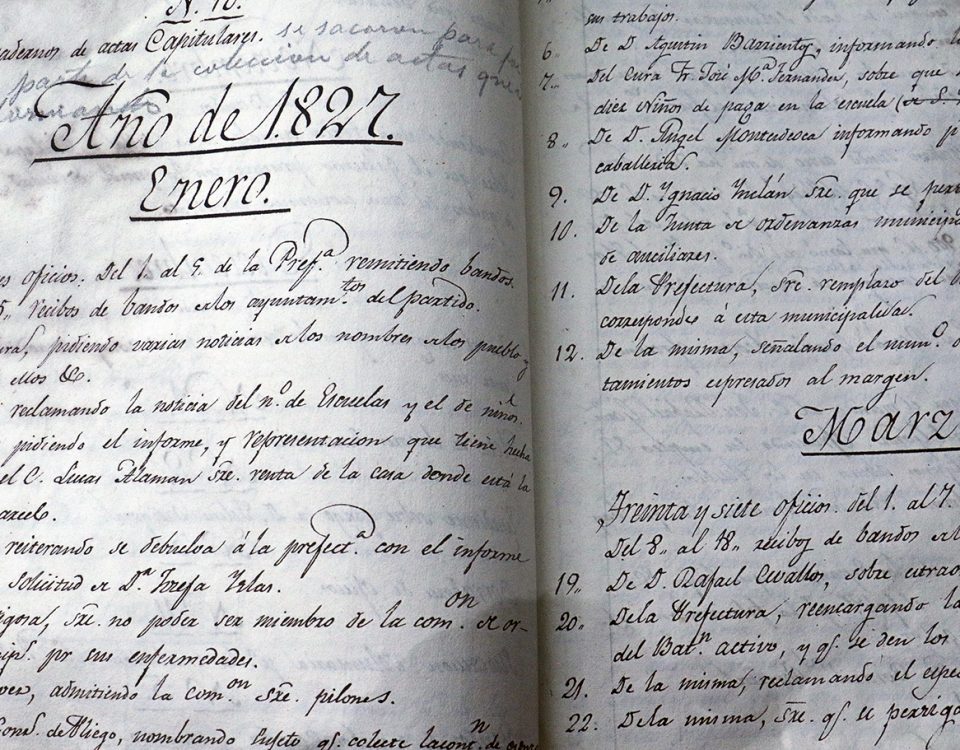 N. 10.
uadernos de actas Capitulares. se sacaron para
parte de la coleccion de actas que
Año de 1827.
Enero.
es oficios. Del 1. al 9. de la Pref.ª remitiendo bandos.
recibos de bandos a los ayuntam.tos del partido.
ura, pidiendo varias noticias a los nombres a los pueblos y
ellos &c.
reclamando la noticia del n.º de Escuelas y el de niñ.s
pidiendo el informe, y representacion que tiene hecha
el C. Lucas Alaman sre. renta de la casa donde está la
arcel.
reiterando se debuelva á la prefect.ª con el informe
solicitud de D.ª Josefa Yslas.
sre. no poder ser miembro de la com.on de or-
pr sus enfermedades.
admitiendo la com.on sre. pilones.
de Aliego, nombrando sujeto q.e colecte la cont.n de
sus trabajos.
6. De D. Agustin Barrientos, informando
7. Del Cura Fr. José M.ª Fernandez, sobre que
diez Niños de paga en la escuela
8. De D. Angel Montedeoca informando
caballeria.
9. De D. Ignacio Ynclán sre. que se per
10. De la Junta de ordenanzas municip
de auxiliares.
11. De la Prefectura, sre. remplazo del
corresponde á esta municipalidad.
12. De la misma, señalando el num.º
tamientos espresados al margen.
Marz
Treinta y siete oficios. del 1. al 7.
Del 8,, al 18,, recibos de bandos
19. De D. Rafael Cevallos, sobre
20. De la Prefectura, reencargando la
del Bat.n activo, y q.e se den los
21. De la misma, reclamando el
22. De la misma, sre. q.e se